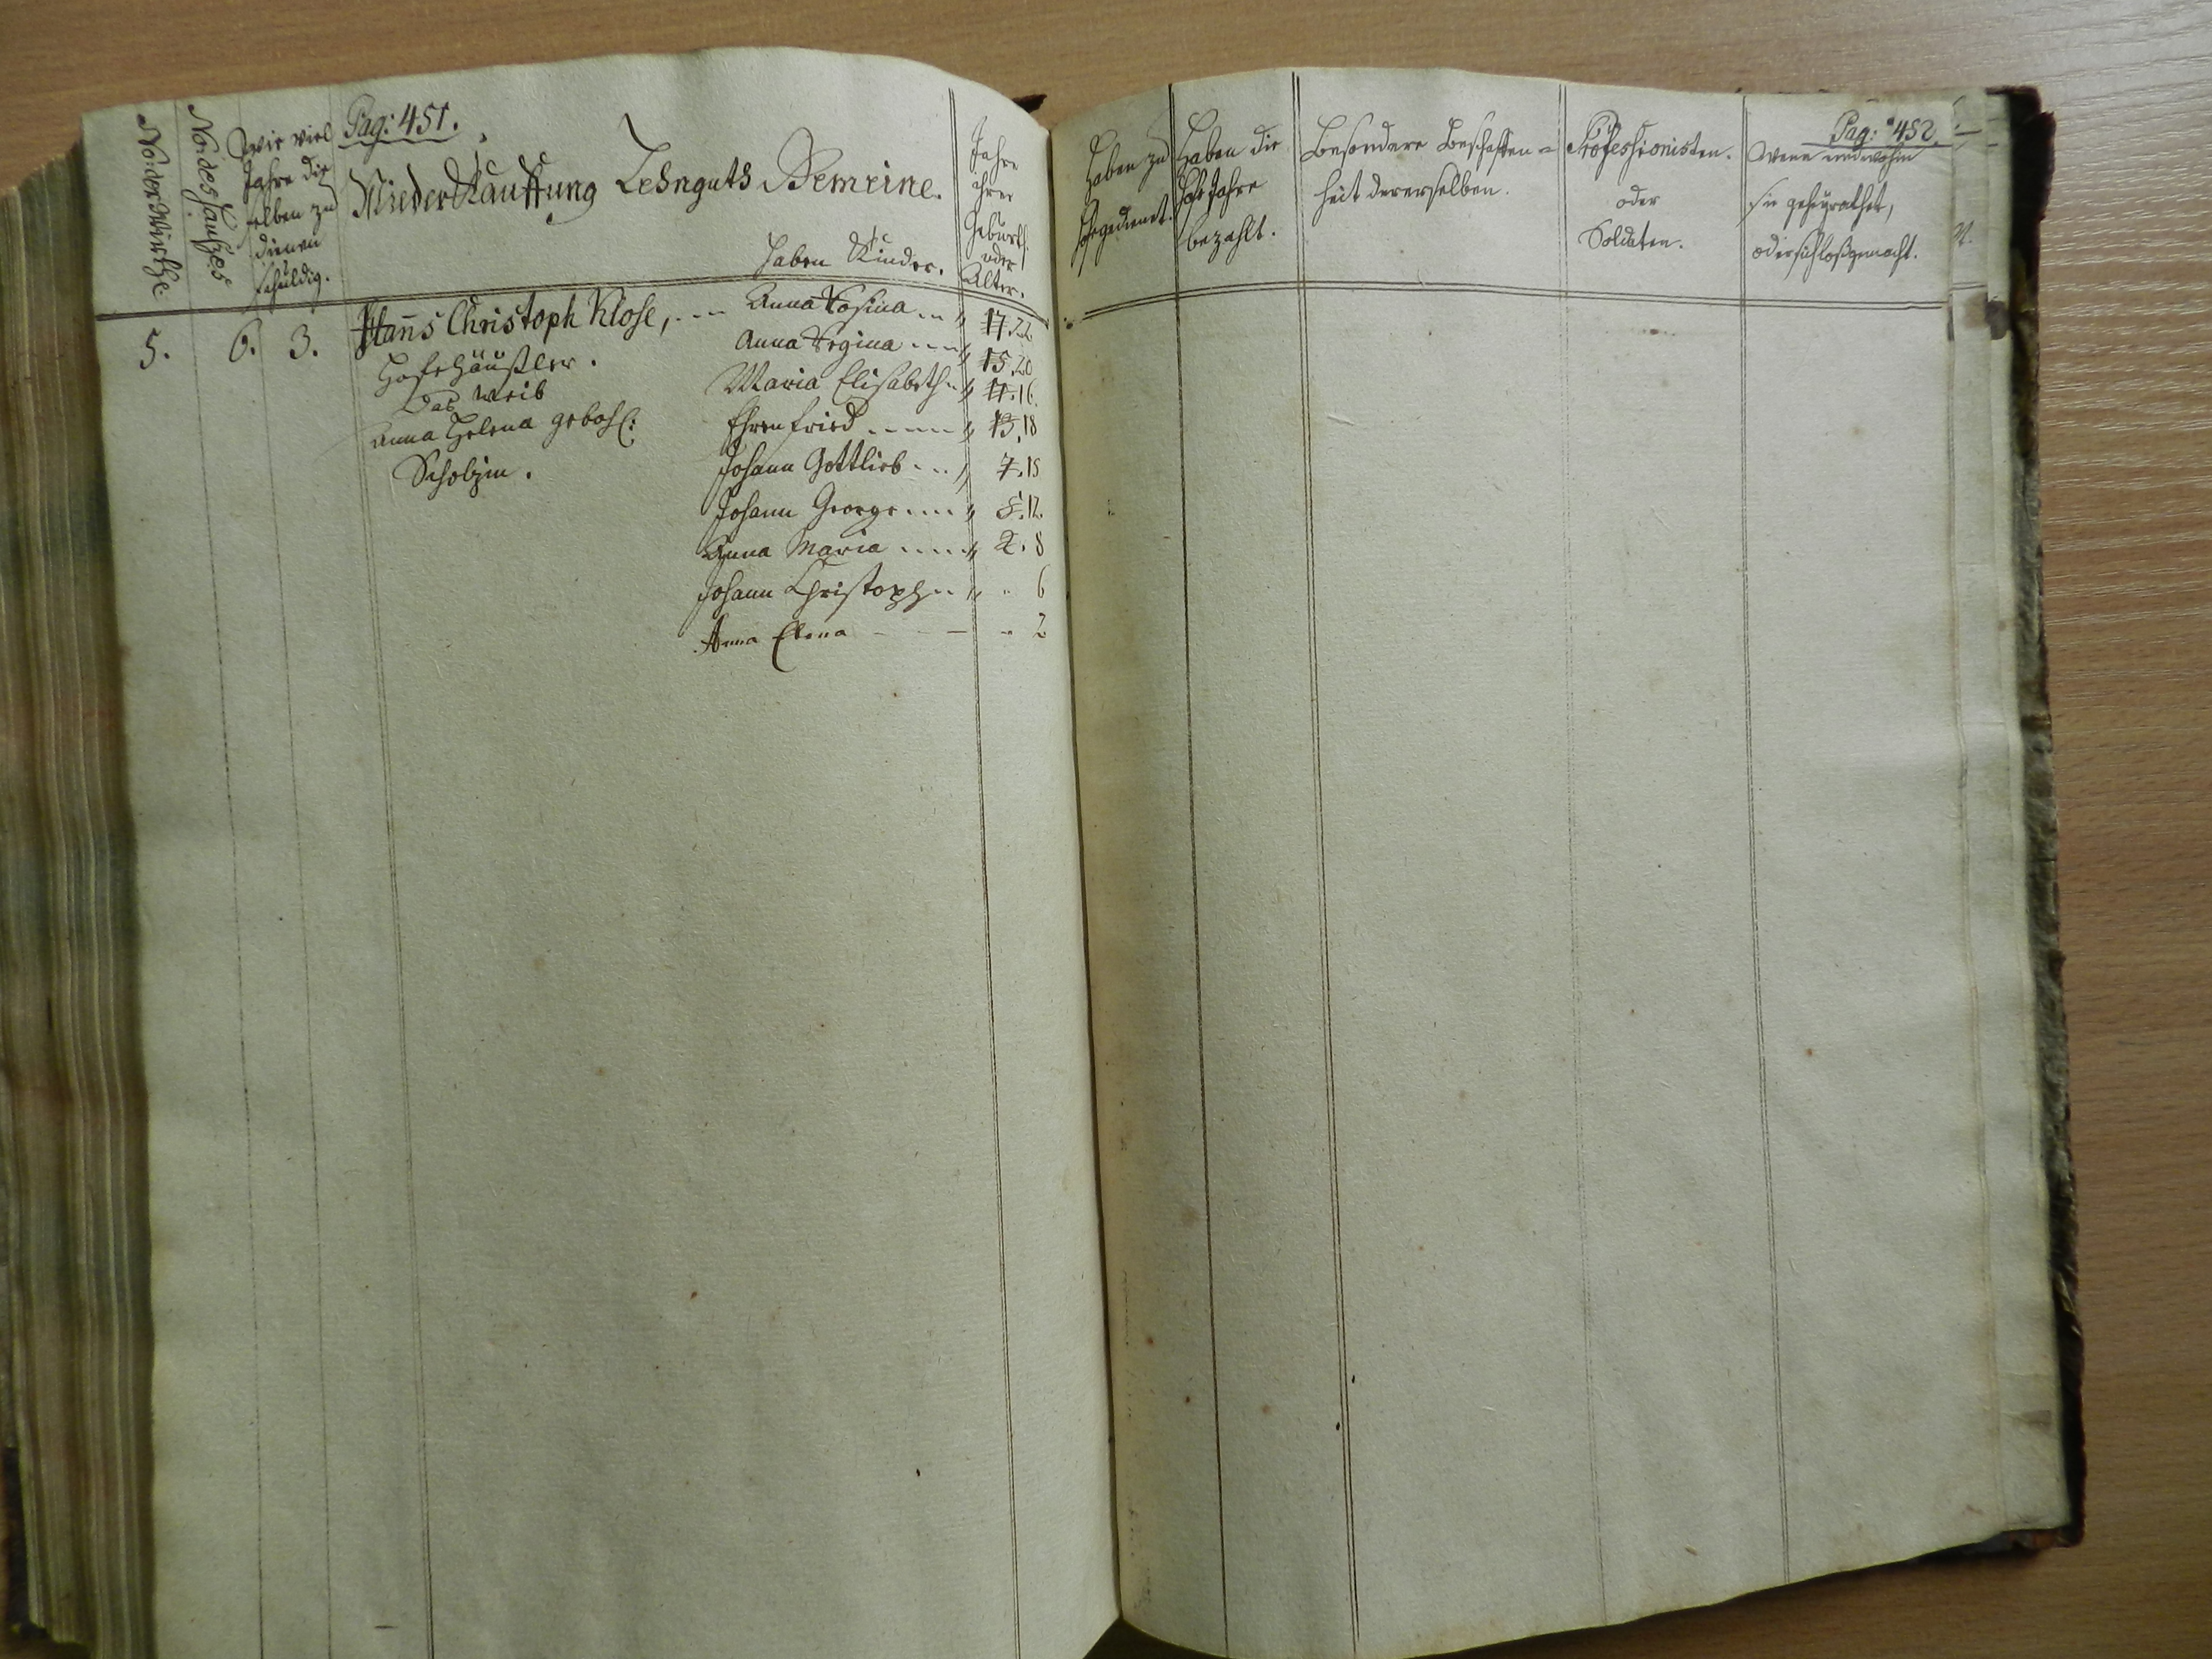 Pag: 451.
No: der Wirthe
No: des Haußes
Wie viel
Jahre die
selben zu
dienen
schuldig.
Nieder Kauffung Lehnguths Gemeine.
haben Kinder.
Jahre
ihrer
Geburth
oder
Alter.
5. 6. 3. Hanns Christoph Klose, Anna Rosina 17. 22
Hofehäußler. Anna Regina 15. 20
Das Weib Maria Elisabeth 11. 16.
Anna Helena gebohr: Ehrenfried 13. 18
Scholzin. Johann Gottlieb 7. 15
Johann George 5. 12.
Anna Maria 2. 8
Johann Christoph 6
Anna Elena 2
Pag: 452.
Haben zu
Hofe gedienet.
Haben die
Hofe Jahre
bezahlt.
Besondere Beschaffen=
heit dererselben.
Professionisten.
oder
Soldaten.
Wenn und wohin
sie geheyrathet,
oder sich loßgemacht.